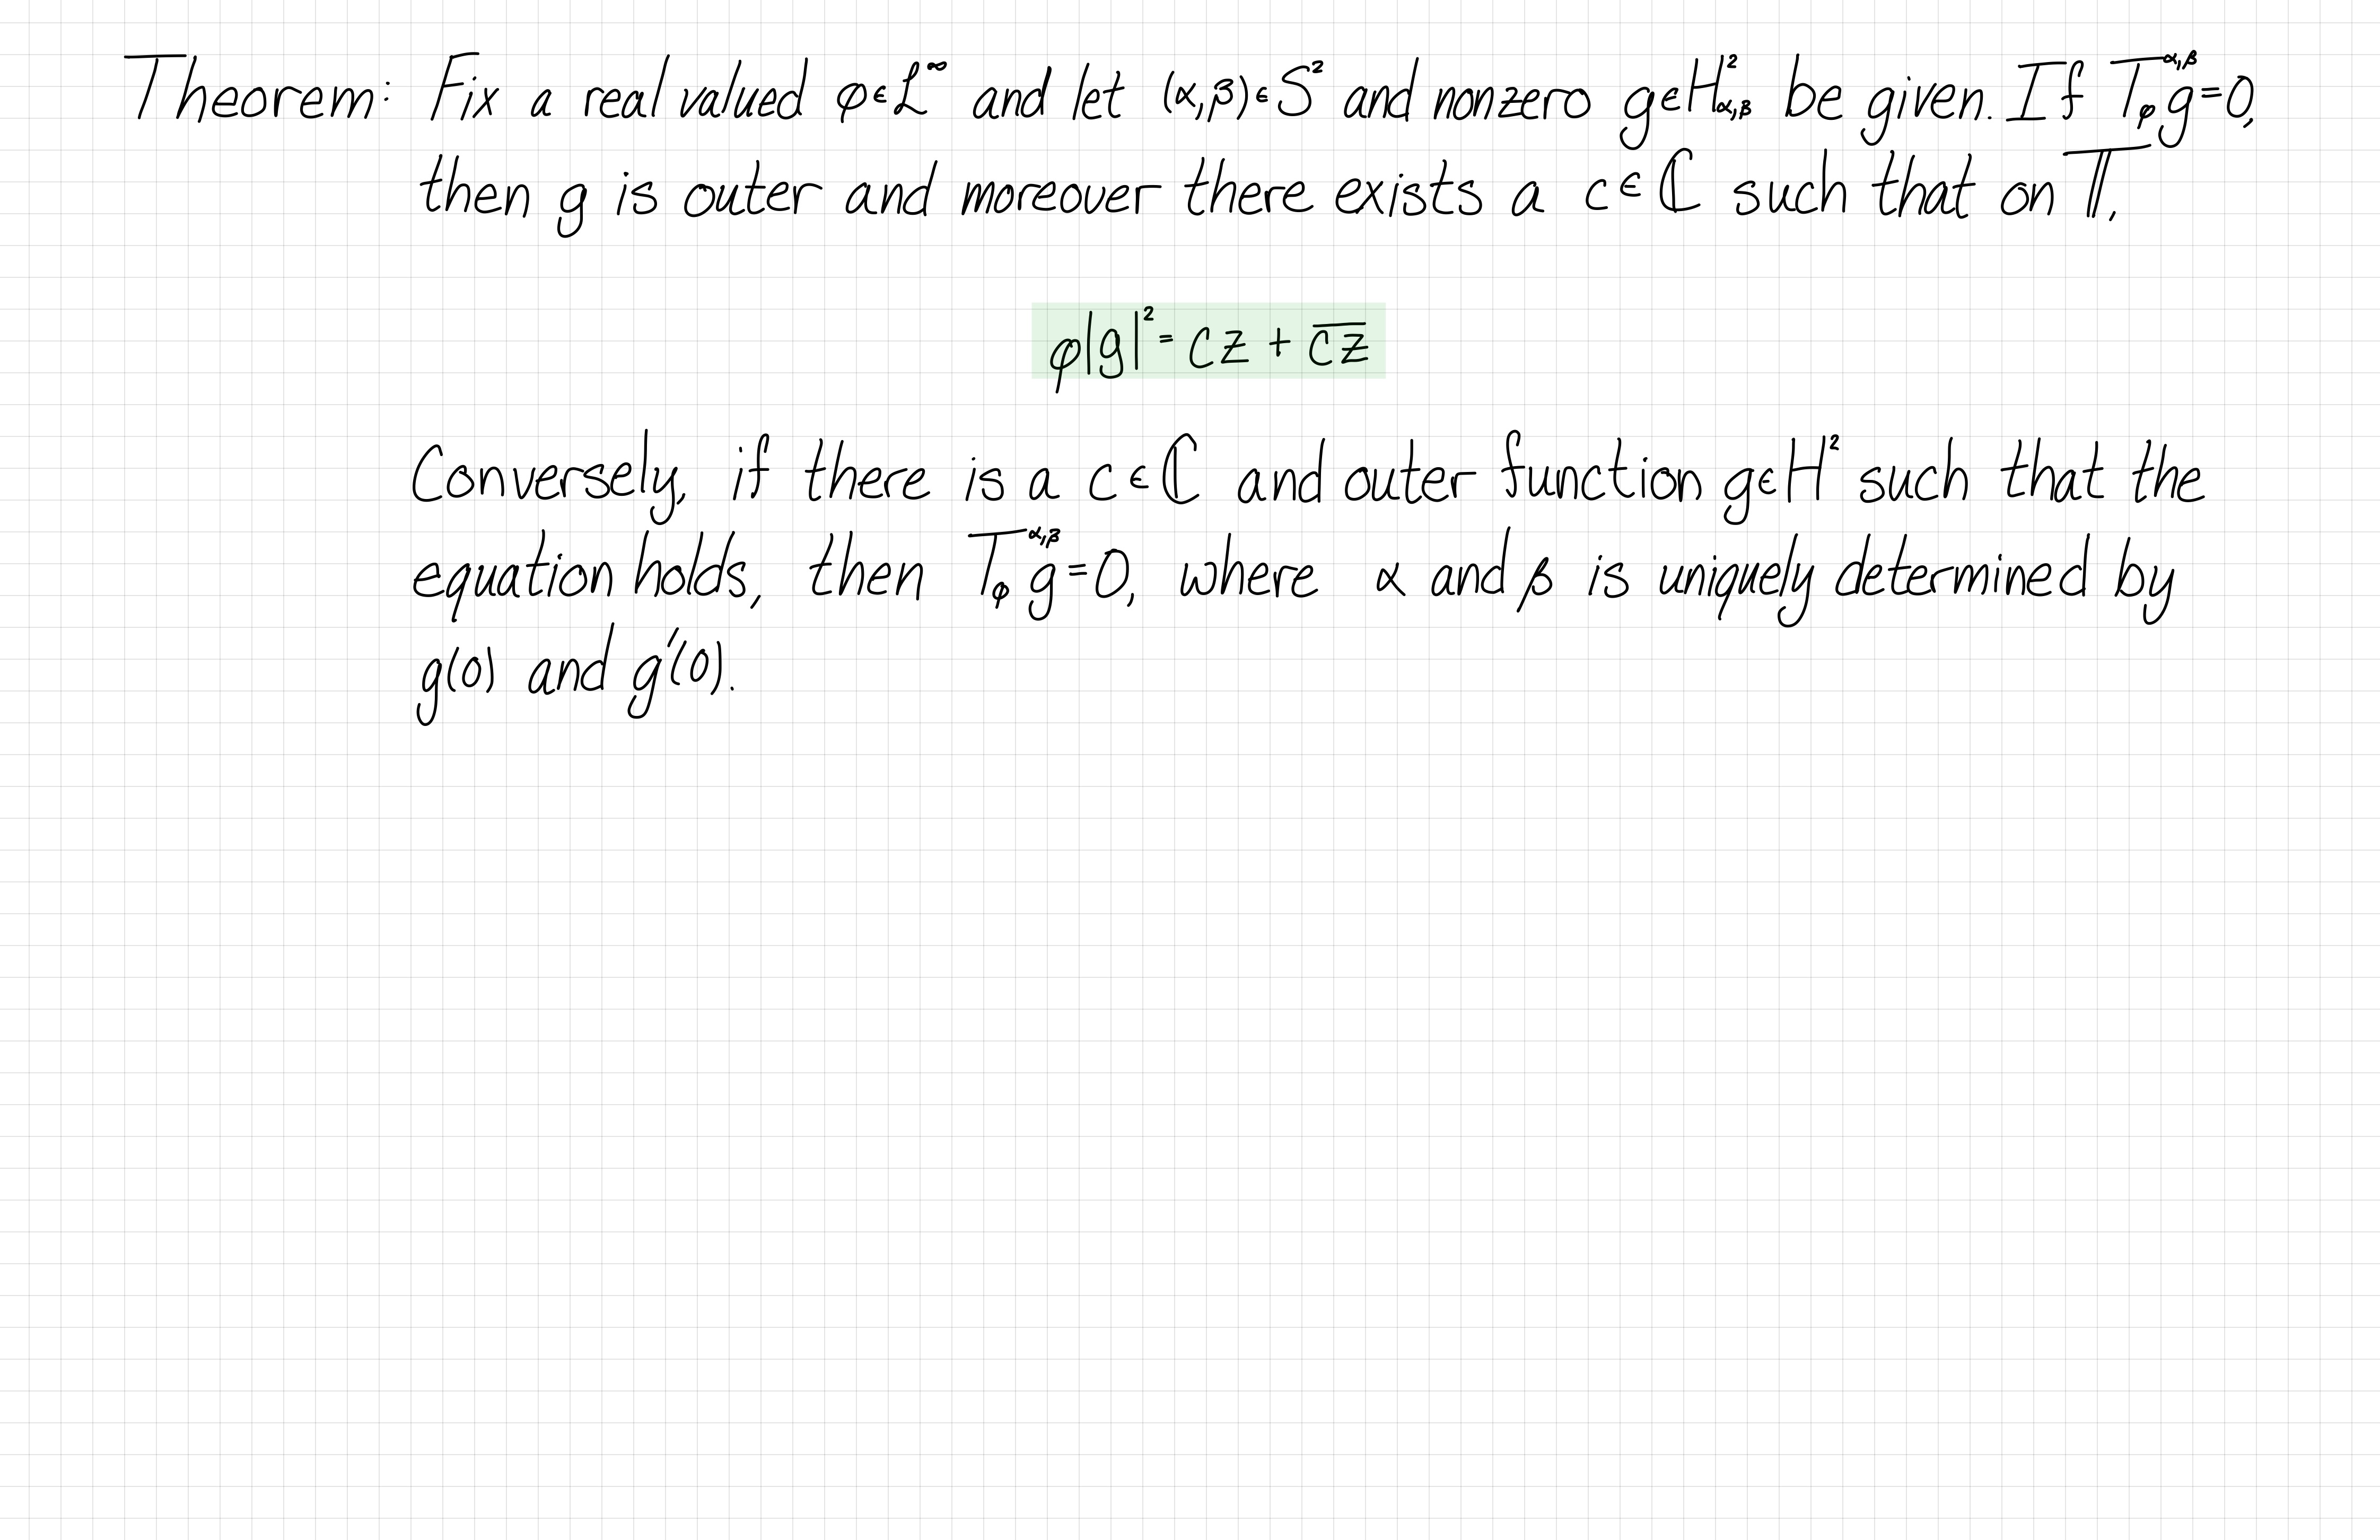 Theorem: Fix a real valued φ∈L^∞ and let (α,β)∈S² and nonzero g∈H²_{α,β} be given. If T_φ^{α,β} g=0,
then g is outer and moreover there exists a c∈ℂ such that on 𝕋,
φ|g|² = cz + \overline{cz}
Conversely, if there is a c∈ℂ and outer function g∈H² such that the
equation holds, then T_φ^{α,β} g=0, where α and β is uniquely determined by
g(0) and g′(0).